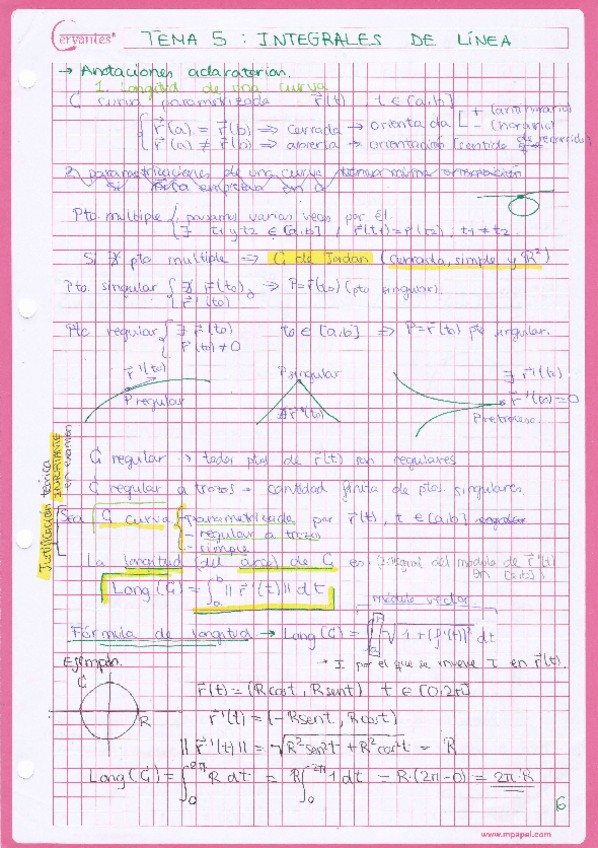 Cervantes
TEMA 5 : INTEGRALES DE LÍNEA
→ Anotaciones aclaratorias.
1. Longitud de una curva
C curva parametrizada r(t) t ∈ [a,b]
r(a) = r(b) ⇒ cerrada → orientada + (antihorario) - (horario)
r(a) ≠ r(b) ⇒ abierta → orientación (sentido de recorrido)
2 parametrizaciones de una curva misma orientación
Pto. multiple pasamos varias veces por él.
∃ t1 y t2 ∈ [a,b] / r(t1) = r(t2) ; t1 ≠ t2
Si ∄ pto multiple ⇒ C de Jordan (cerrada, simple y R²)
Pto. singular ∄ r'(to) ⇒ P=r(to) (pto singular).
Pto regular ∃ r'(to) to ∈ [a,b] ⇒ P=r(to) pto singular.
r'(to) ≠ 0
r'(to)
P regular
P singular
∄ r'(to)
∃ r'(to)
r'(to)=0
P retroceso
C regular → todos ptos de r(t) son regulares
C regular a trozos → cantidad finita de ptos. singulares.
Justificación teórica
en examen
Sea C curva - parametrizada por r(t), t ∈ [a,b]
- regular a trozos
- simple
La longitud (del arco) de C es (integral del modulo de r'(t) en [a,b])
Long (C) = ∫ₐᵇ || r'(t) || dt
módulo vector
Fórmula de longitud → Long (C) = ∫ √1+(f'(t))² dt
→ I por el que se mueve t en r(t).
Ejemplo.
C
R
r(t) = (R cost, R sent) t ∈ [0,2π]
r'(t) = (-R sent, R cost)
|| r'(t) || = √R² sen²t + R² cos²t = R
Long (C) = ∫₀²π R dt = R ∫₀²π 1 dt = R·(2π-0) = 2π·R
6
www.mpapel.com